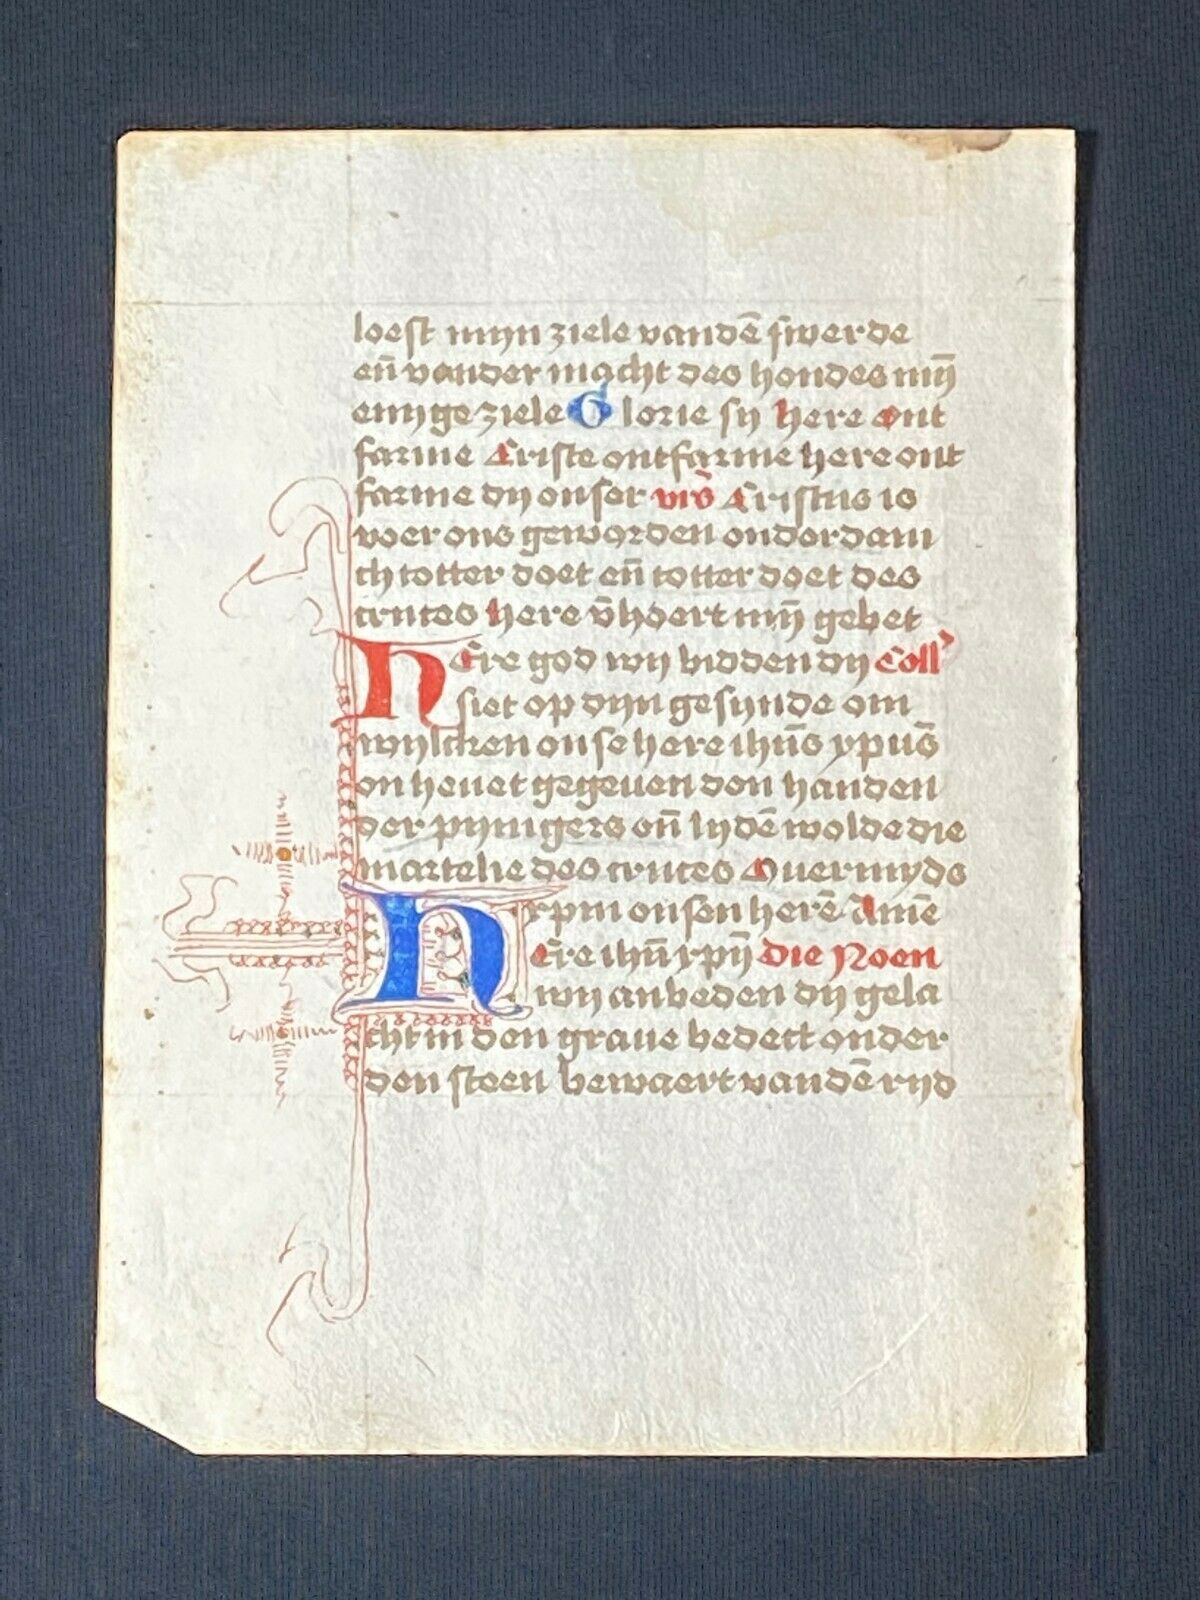 loest mijn ziele vandē swerde
en̄ vander macht des hondes mij̄
enyge ziele Glorie sij here ont
farme Criste ontfarme here ont
farme dij onser v͛s̄ Cristus is
voer ons geworden onderdani
ch totter doet en̄ totter doet des
cruces here v̄hoert mij̄ gebet
HEre god wij bidden dij Coll̓
siet op dijn gesynde om
wylcken onse here ihūs xpūs
en heuet gegeuen den handen
der pynigers en̄ lydē wolde die
martelie des cruces Ouermyds
xpm onsen herē Amē
HEre ihū xpij̄ Die Noen
wij anbeden dij gela
cht in den graue bedect onder
den steen bewaert vandē ryd